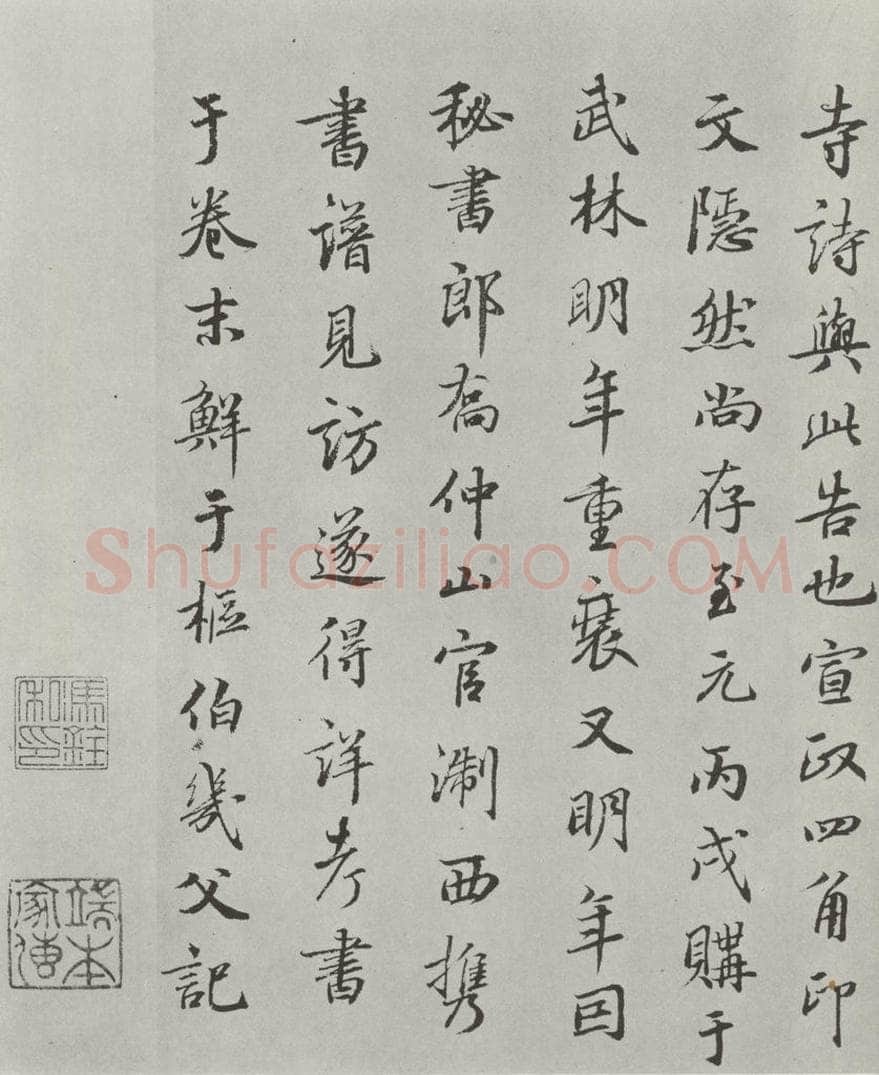 寺詩與此告也宣政四角印
文隱然尚存至元丙戌購于
武林明年重裝又明年因
秘書郎喬仲山官淛西携
書譜見訪遂得詳考書
于卷末鮮于樞伯幾父記
Shufaziliao.COM